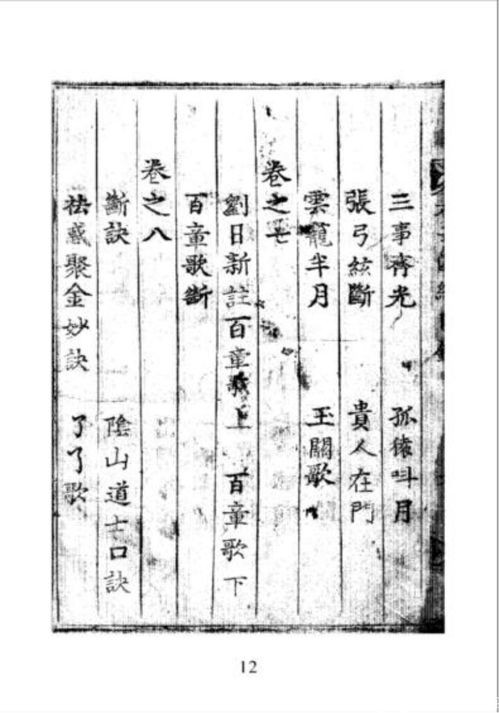 三事齊光　孤猿叫月
張弓絃斷　貴人在門
雲籠半月　玉關歌
卷之七
劉日新註百章歌上　百章歌下
百章歌斷
卷之八
斷訣　陰山道士口訣
祛惑聚金妙訣　了了歌
12